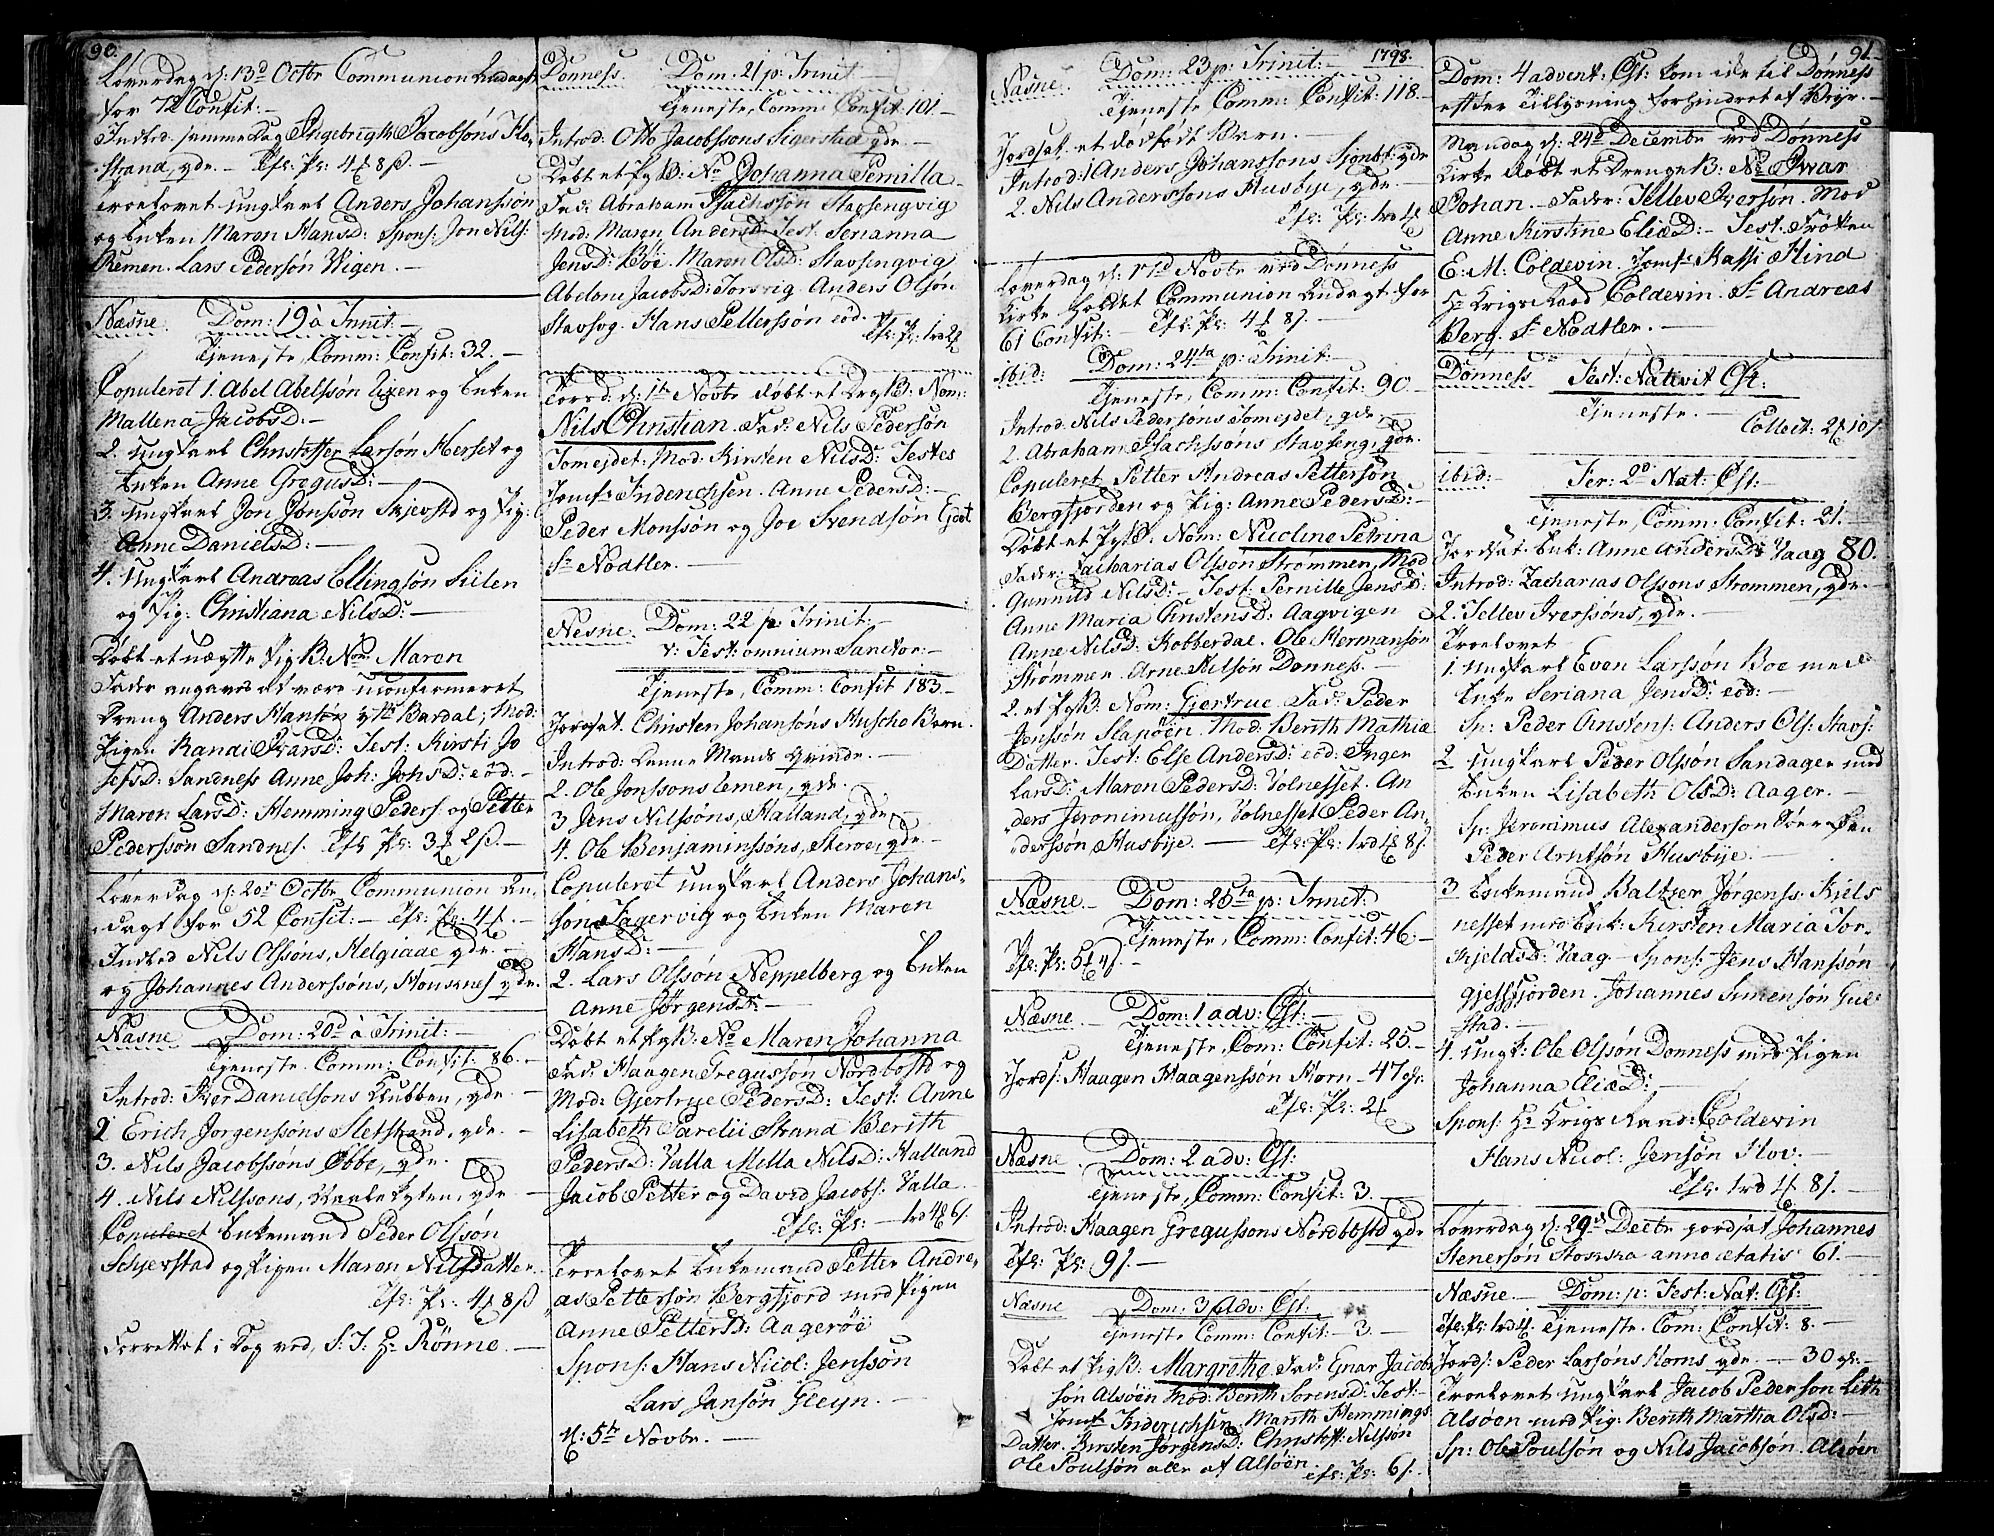 90.
Løverdag d: 13d Octbr Communion Andagt
for 72 Confit: —
Introd. samme Dag Ingebrigt Jacobsöns
Strand, qde. — Efs: Ps: 4 8 ß —
Troelovet Ungkarl Anders Johanssön
og Enken Maren HansD: Spons: Jon Nils:
Remen. Lars Pedersön Wigen. —
Næsne. Dom: 19 à Trinit: —
Tjeneste, Comm: Confit: 32. —
Copuleret 1. Abel Abelssön og Enken
Mallena JacobsD: —
2. Ungkarl Christoffer Larsön Herset og
Enken Anne GregusD: —
3. Ungkarl Jon Jonssön Skjevstd og Pig:
Anne DanielsD: —
4. Ungkarl Andreas Ellingsön Siilen
og Pig: Christiana NilsD: —
Døbt et uægtte PigB: Nom: Maren
Fader angaves at være uconfirmeret
Dreng Anders Hansön Bardal; Mod:
Pigen Randi IvarsD: Test: Kirsti Jo
sefsD: Sandness Anne Joh: JohsD: eod: —
Maren LarsD: Hemming Peders: og Petter
Pederssön Sandnes. Efs Ps: 3 2 ß. —
Løverdag d: 20de Octbr Communion An-
dagt for 52 Confit: — Efs: Ps: 4 . —
Introd Nils Olssöns, Helgiaae qde. —
og Johannes Anderssöns, Housnes qde.
Næsne Dom: 20d à Trinit: —
Tjeneste. Comm: Confit: 86. —
Introd: Iver Danielsons Klubben, qde. —
2 Erich Jorgenssöns Sletstrand, qde. —
3. Nils Jacobssöns Ebbe, qde. —
4. Nils Nilssons, qde —
Copuleret Enkemand Peder Olssön
Schjevstad og Pigen Maren Nilsdatter.
Efs: Ps: 4 8 ß
Forrettet i Dag ved, S: T. Hr Rönne. —
Dönness. Dom: 21 p: Trinit —
Tjeneste, Comm: Confit: 101. —
Introd: Otto Jacobssons Sigerstad qde. —
Døbt et PigB: No Johanna Pernilla
Fad: Abraham Isachssön Stavsengvig
Mod: Maren AndersD: Test. Serianna
JensD: Böe. Maren OlsD: Stavsengvig
Abelone JacobsD: Torsvig. Anders Olsön
Stavsvg. Hans Pettersson eod. —
Efs: Ps: 1rd 2
Torsd: d: 1te Novbr døbt et DrgB: Nom:
Nils Christian. Fad: Nils Pedersön
Tomejdet: Mod: Kirsten NilsD: Testes
Jomfr Friderichsen. Anne PedersD: —
Peder Monssön og Joe Svendsön
Sr Nodtler. —
Nesne. Dom: 22 p: Trinit: —
v: Fest: omnium Sanctor: —
Tjeneste, Comm: Confit 183. —
Jordsat. Christen Johansöns Huscho Barn.
Introd: Denne Mands Qvinde. —
2. Ole Jonssons Lemen, qde.
3 Jens Nilssöns, Halland, qde
4. Ole Benjaminssöns, Steroe, qde. —
Copuleret Ungkarl Anders Johans-
sön Fagervig og Enken Maren
HansD: —
2. Lars Olssön Neppelberg og Enken
Anne JörgensD: —
Døbt et PigB: No Maren Johanna
Fad: Haagen Gregussön Nordbostd og
Mod: Gjertrue PedersD: Test: Anne
Lisabeth Parelii Strand Berith
PedersD: Valla Milla NilsD: Halland
Jacob Petter og David Jacobs: Valla.
Efs: Ps: — 1rd 4 6 ß.
Troelovet Enkemand Petter Andre,
as Pettersön Bergfjord med Pigen
Anne PettersD: Aagerøe
Spons: Hans Nicol: Jenssön
Lars Jansön Gleyn. —
d: 5te Novbr. —
Næsne. Dom: 23 p: Trinit: — 1798.
Tjeneste Comm: Confit: 118 —
Jordsat et dødfødt Barn. —
Introd: 1 Anders Johanssons Sjonbt: qde
2. Nils Anderssöns Husbye, qde —
Efs: Ps: 1rd 4
Løverdag d: 17d Novbr ved Dönness
Kirke holdet Communion Andagt for
61 Confit: — Efs: Ps: 4 8 ß. —
ibid: Dom: 24ta p: Trinit: —
Tjeneste, Comm: Confit: 90 —
Introd: Nils Pedersöns Tomejdet, qde —
2. Abraham Isachssöns Stavseng, qde.
Copuleret Petter Andreas Pettersön
Bergfjorden og Pig: Anne PedersD: —
Døbt et PigB. Nom: Nicoline Petrina
Fader: Zacharias Olsson Strømmen, Mod
Gunnild NilsD: — Test: Pernille JensD:
Anne Maria ChristensD: Aagvigen
Anne NilsD: Kobberdal. Ole Hermansön
Strömmen. Arne Nilsön Dönness. —
2. et PigB: Nom: Giertrue Fad: Peder
Jenssön Slapöen. Mod: Berith Mathiæ
Datter. Test: Else AndersD: eod: Inger
LarsD: Maren PedersD: Volnesset. An
ders Jeronimussön, Volnesset Peder An-
derssön, Husbye. — Efs: Ps: 1rd 8 ß.
Næsne — Dom: 25ta p: Trinit:
Tjeneste, Comm: Confit: 46 —
Efs: Ps: 5 4 ß. —
Næsne — Dom: 1 adv: Cst: —
Tjeneste, Com: Confit: 25. —
Jords: Haagen Haagenssön Horn — 47 gr:
Efs: Ps: 2
Næsne — Dom: 2 adv: Cst:
Tjeneste, Comm: Confit: 3. —
Introd: Haagen Gregussons Nordbostd qde
Efs: Ps: 9 ß. —
Næsne Dom: 3 Adv: Cst: —
Tjeneste Comm: Confit: — 3. —
Døbt et PigB: Margrethe Fad: Einar Jacob
sön Alsöen Mod: Berith SörensD: Test —
Jomfr Friderichsen. Marith Hemmings
Datter. Kirsten JörgensD: Christoff: Nilssön
Ole Poulsön alle af Alsöen. Efs: Ps: 6 ß.
91
Dom: 4 advent: Cst: kom icke til Dönness
effter Tillysning forhindret af Veyr. —
Mandag d: 24d Decembr ved Dönness
Kirke døbt et DrengeB: No Ivar
Johan — Fader: Tellev Iversön. Mod
Anne Kirstine EliæD: — Test. Frøken
E: M: Coldevin. Jomfr Kassi Hind
Hr Krigs Raad Coldevin. Sr Andreas
Berg. Sr Nodtler. —
Dönness Fest: Nativit Cst:
Tjeneste. —
Collect: 2 10 ß
ibid: — Fer: 2d Nat: Cst: —
Tjeneste, Comm: Confit: 21. —
Jordsat Enk: Anne AndersD: Vaag 80.
Introd: Zacharias Olssons Strömmen, qde. —
2. Tellev Iverssöns, qde. —
Troelovet
1. Ungkarl Even Larssön Böe med
Enke Seriana JensD: eod: —
Sp: Peder Christens: Anders Ols: Stavs:
2 Ungkarl Peder Olssön Sandager med
Enken Lisabeth OlsD: Aager. —
Sp: Jeronimus Alexanderson
Peder Arntsön Husbye. —
3 Enkemand Baltzer Jörgenss: Kiels
nesset med Enk: Kirsten Maria Tor-
kjeldsD: Vaag — Spons: Jens Hanssön
Gjessfjorden. Johannes Simensön Gull
stad. —
4. Ungk: Ole Olssön Dönness med Pigen
Johanna EliæD: —
Spons: Hr Krigs Raad: Coldevin
Hans Nicol: Jensön Hov: —
Efs: 1rd 4 8 ß. —
Løverdag d: 29de Decbr jordsat Johannes
Stenersön anno ætatis 61. —
Næsne. — Dom: p: Fest: Nat: Cst:
Efs: Ps: 1rd 4. Tjeneste. Com: Confit: 8. —
Jords: Peder Larsöns Horns qde. — 30 gr: —
Troelovet Ungkarl Jacob Pederson Lith
Alsöen med Pig: Berith Martha OlsD: —
Sp: Ole Poulsön og Nils Jacobsön. Alsöen